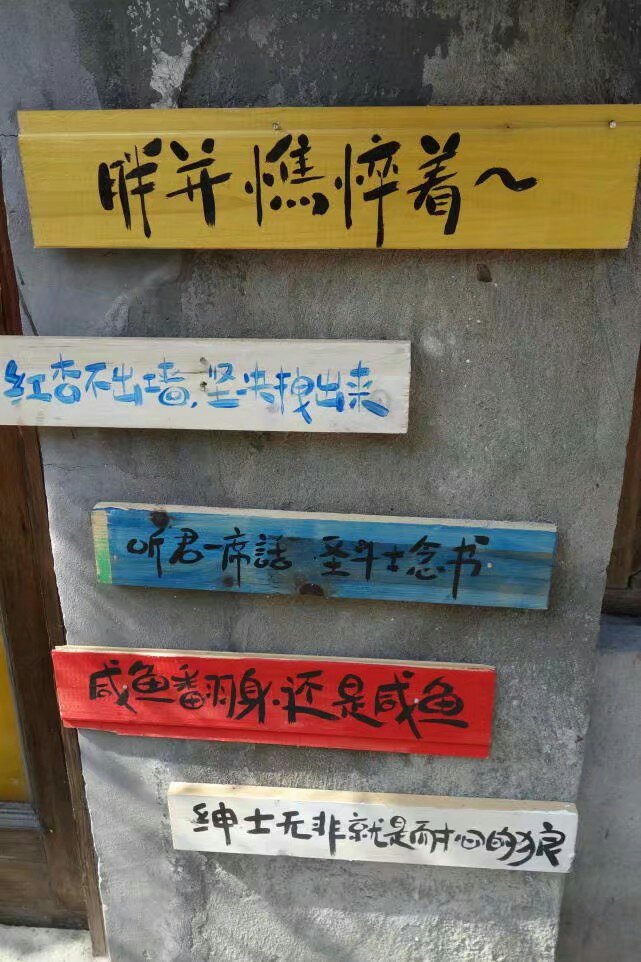 胖并憔悴着～
红杏不出墙，坚决拽出来
听君一席話 圣斗士念书
咸鱼翻身还是咸鱼
绅士无非就是耐心的狼